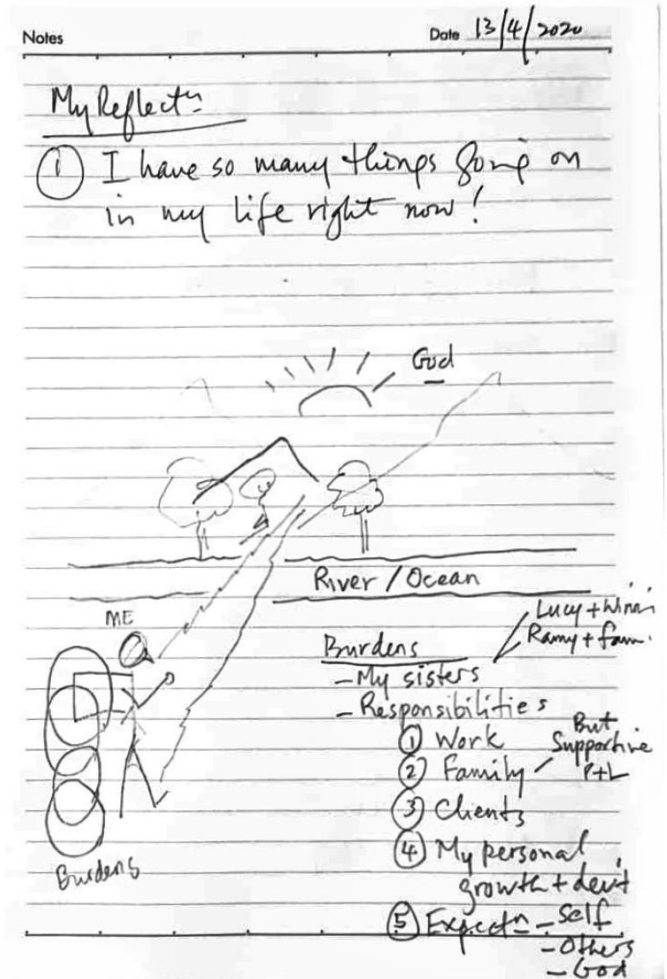 Notes
Date 13/4/2020
My Reflectn
① I have so many things going on
in my life right now!
God
River / Ocean
ME
Burdens
Burdens
- My sisters
Lucy +
Ramy + fam.
- Responsibilities
① Work
② Family
But
Supportive
P+L
③ Clients
④ My personal
growth + dev't
⑤ Expectn - Self
- Others
- God